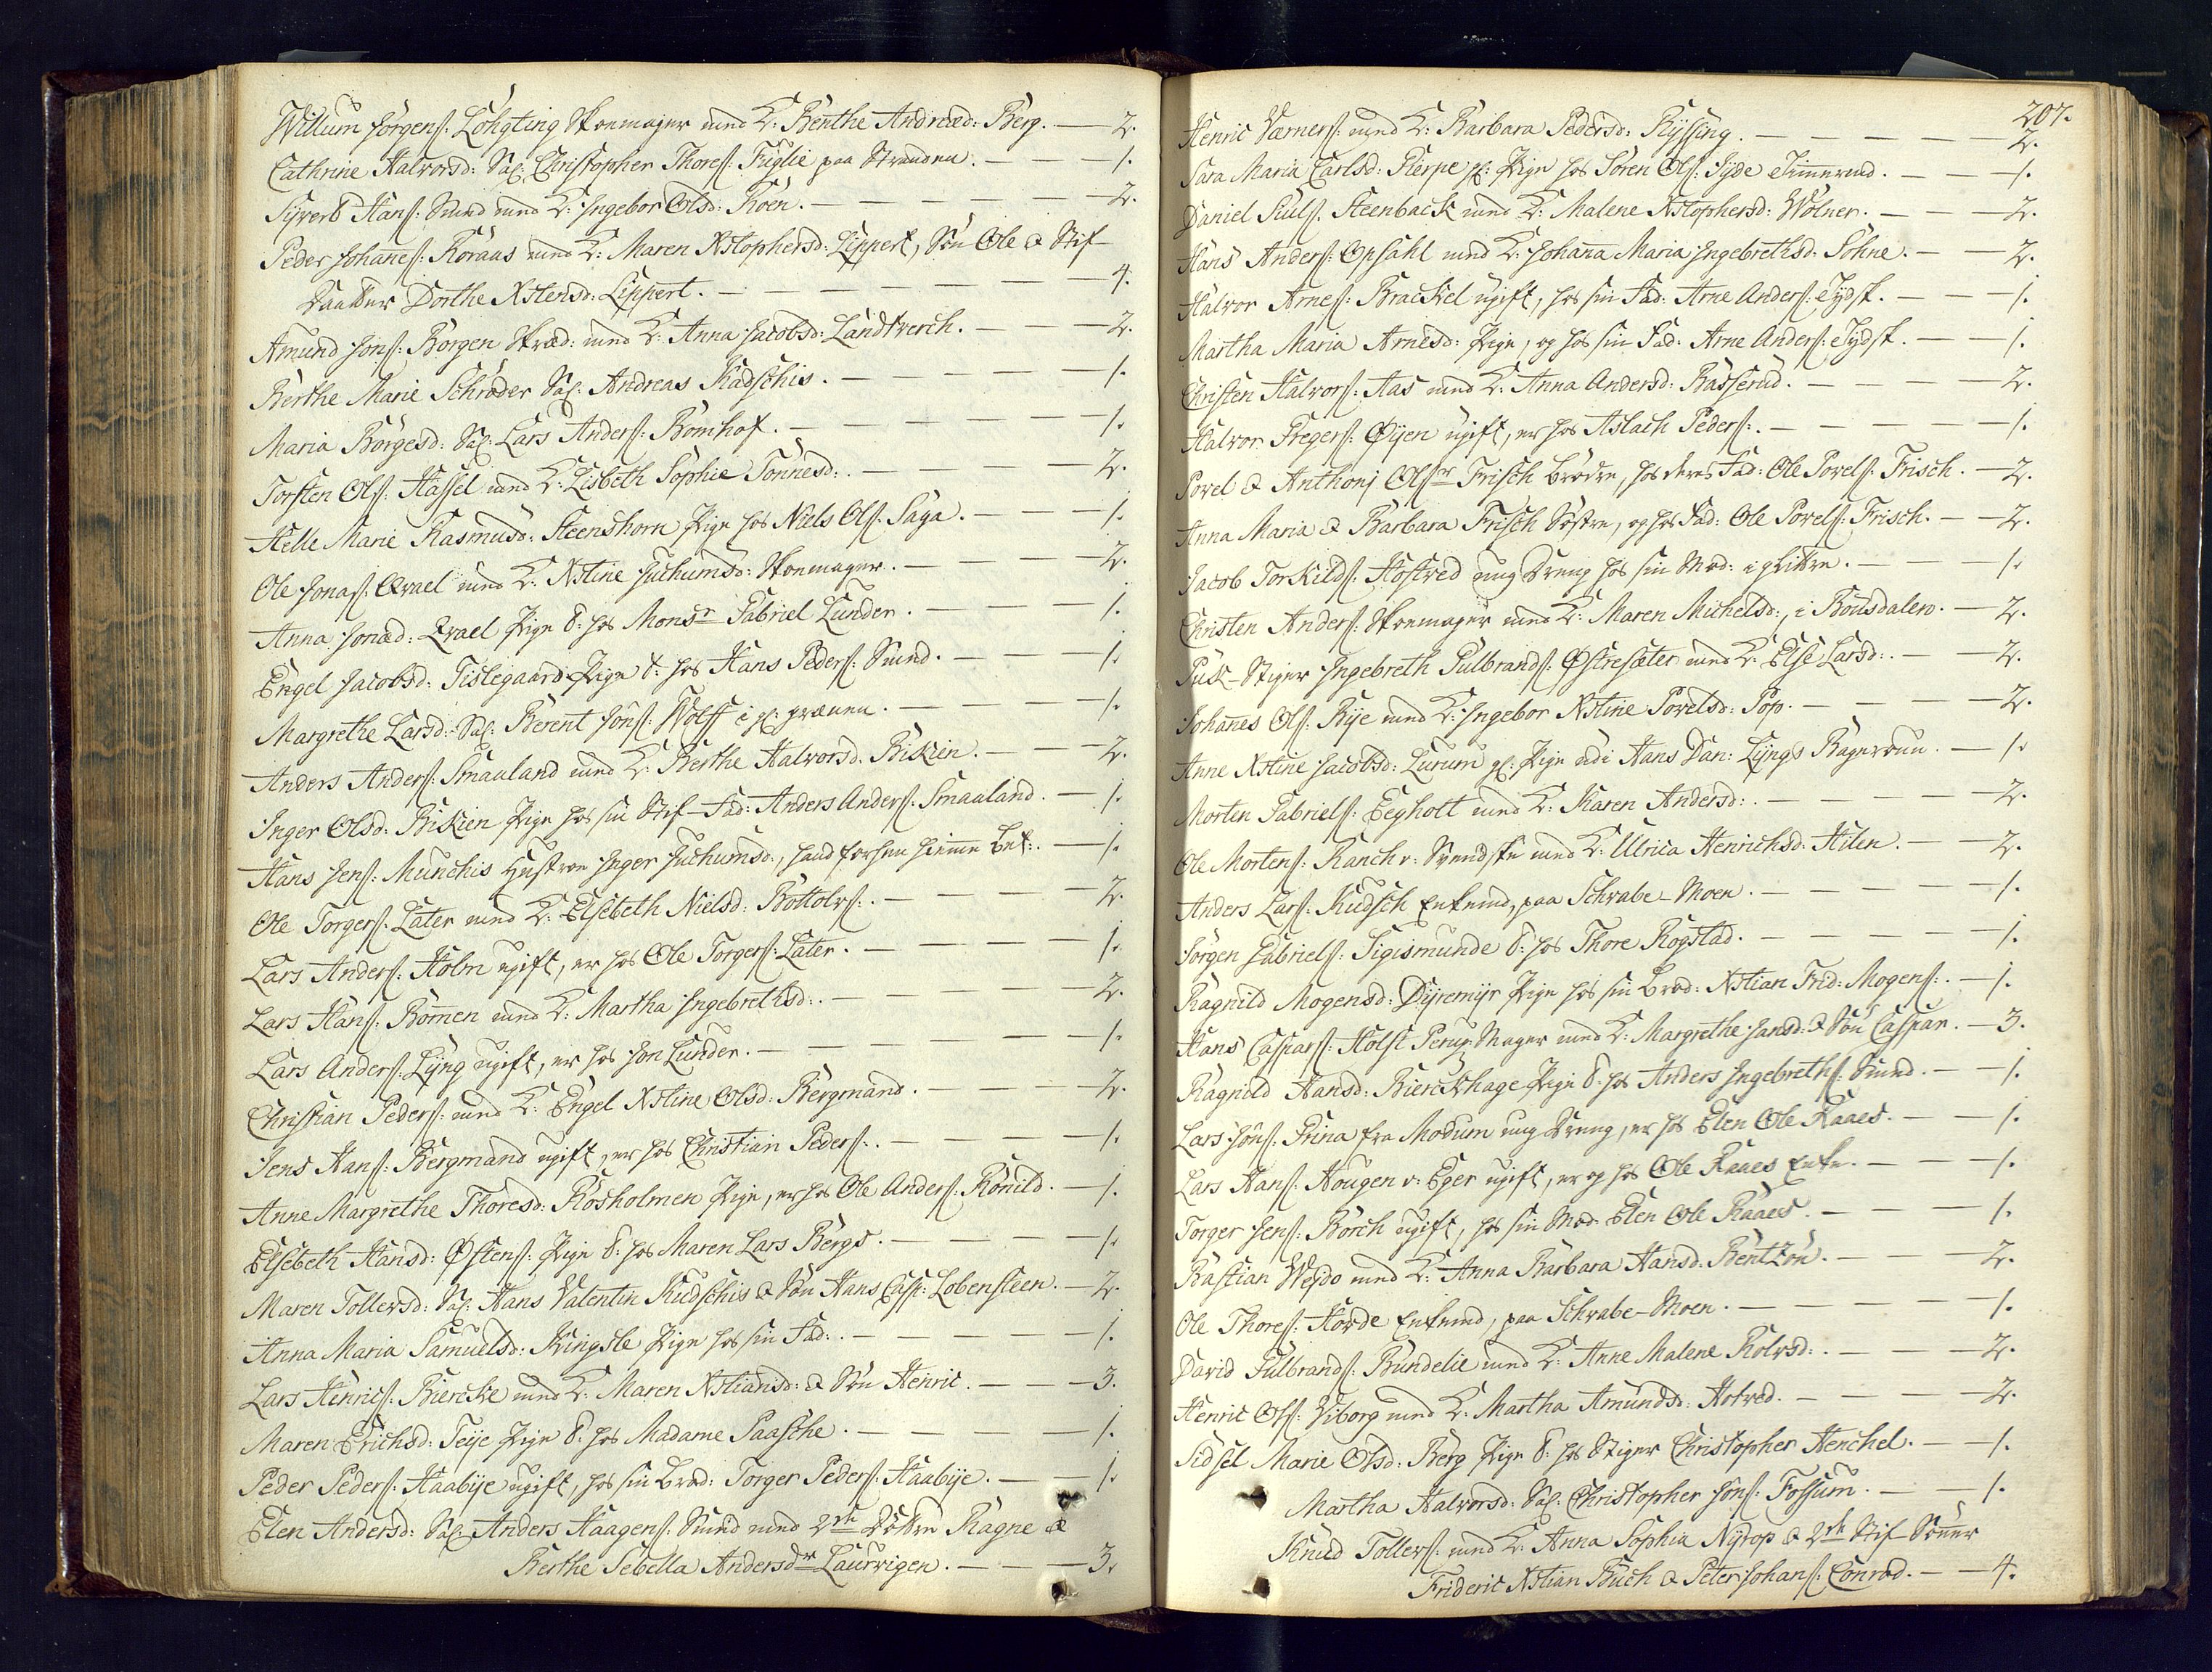 Willum Jørgens: Løhgting Skoemager med K: Benthe Andread: Berg. — 2.
Cathrine Halvorsd: Sal: Christopher Thores: Fuglie paa Stranden. — 1.
Syvert Hans: Smed med K: Ingebor Olsd: Roen. — 2.
Peder Johannes: Roraas med K: Maren Xstophersd: Lippert, Søn Ole & Stif-
Daatter Dorthe Xstensd: Lippert. — 4.
Amund Jons: Borgen Skræd: med K: Anna Jacobsd: Landtverch. — 2.
Berthe Marie Schrøder Sal: Andreas Kudschis. — 1.
Maria Børgesd: Sal: Lars Anders: Bomhof. — 1.
Torsten Ols: Hassel med K: Lisbeth Sophie Tønnesd: — 2.
Helle Marie Rasmusd: Steenshorn Pige hos Niels Ols: Saga. — 1.
Ole Jonas: Qvael med K: Xstine Juchumsd: Skoemager. — 2.
Anna Jonæd: Qvael Pige t: hos Monsr Gabriel Lunder. — 1.
Engel Jacobsd: Tislegaard Pige t: hos Hans Peders: Smed. — 1.
Margrethe Larsd: Sal: Berent Jøns: Wolff i gl: — 1.
Anders Anders: Smaaland med K: Berthe Halvorsd: Bikien. — 2.
Inger Olsd: Bikien Pige hos sin Stif-Fad: Anders Anders: Smaaland. — 1.
Hans Jens: Munchis Hustroe Inger Juchumsd:, hand forhen hiemme Bet: — 1.
Ole Torgers: Later med K: Elsebeth Nielsd: Bottolvs: — 2.
Lars Anders: Holm ugift, er hos Ole Torgers: Later. — 1.
Lars Hans: Bommen med K: Martha Ingebrethsd: — 2.
Lars Anders: Lyng ugift, er hos Jon Lunder. — 1.
Christian Peders: med K: Engel Xstine Olsd: Bergmand. — 2.
Jens Hans: Bergmand ugift, er hos Christian Peders: — 1.
Anne Margrethe Thoresd: Rosholmen Pige, er hos Ole Anders: Ronild. — 1.
Elsebeth Hansd: Østens: Pige t: hos Maren Lars Bergs. — 1.
Maren Tollevsd: Sal: Hans Valentin Kudschis & Søn Hans Casp: Lobensteen. — 2.
Anna Maria Samuelsd: Kingsle Pige hos sin Fad: — 1.
Lars Henrics: Biercke med K: Maren Xstiansd: & Søn Henric. — 3.
Maren Erichsd: Teye Pige t: hos Madame Paasche. — 1.
Peder Peders: Haabye ugift, hos sin Brod: Torger Peders: Haabye. — 1.
Elen Andersd: Sal: Anders Haagens: Smed med 2de Døttre Ragne &
Berthe Sebella Andersdr Laurvigen. — 3.
207.
Henric Værners: med K: Barbara Pedersd: Ryssing. — 2.
Sara Maria Carlsd: Pierpe gl: Pige hos Søren Ols: Gyde Timmermd. — 1.
Daniel Puls: Steenback med K: Malene Xstophersd: Wølner. — 2.
Hans Anders: Opsahl med K: Johanna Maria Ingebrethsd: Søhne. — 2.
Halvor Arnes: Brackel ugift, hos sin Fad: Arne Anders: Tydsk. — 1.
Martha Maria Arnesd: Pige, og hos sin Fad: Arne Anders: Tydsk. — 1.
Christen Halvors: Aas med K: Anna Andersd: Basserud. — 2.
Halvor Gregers: Øyen ugift, er hos Aslach Peders: — 1.
Povel & Anthonj Olsr Frisch Brødre, hos deres Fad: Ole Povels: Frisch. — 2.
Anna Maria & Barbara Frisch Søstre, og hos Fad: Ole Povels: Frisch. — 2.
Jacob Torkilds: Hostved ung Dreng hos sin Mod: i — 1.
Christen Anders: Skoemager med K: Maren Michelsd:, i Bousdalen. — 2.
Puk-Stiger Ingebreth Gulbrands: Østresæter med K: Else Larsd: — 2.
Johannes Ols: Bye med K: Ingebor Xstine Povelsd: Pop. — 2.
Anne Xstine Jacobsd: Lurum gl: Pige udi Hans Dan: Lyngs — 1.
Morten Gabriels: Egholt med K: Karen Andersd: — 2.
Ole Mortens: Ranch v: Svendske med K: Ulrica Henrichsd: Hilen. — 2.
Anders Lars: Kudsch Enkemd, paa Schvabe-Moen. — 1.
Jørgen Gabriels: Sigismunde t: hos Thore Rogstad. — 1.
Ragnild Mogensd: Dyremyr Pige hos sin Brod: Xstian Frid: Mogens: — 1.
Hans Caspars: Holst Perug-Mager med K: Margrethe Jansd: & Søn Caspar. — 3.
Ragnild Hansd: Bierckhage Pige t: hos Anders Ingebreths: Smed. — 1.
Lars Jøns: Prina fra Modum ung Dreng, er hos Elen Ole Raaes. — 1.
Lars Hans: Hougen v: Eger ugift, er og hos Ole Raaes Enke. — 1.
Torger Jens: Borch ugift, hos sin Mod: Elen Ole Raaes. — 1.
Bastian Weydo med K: Anna Barbara Hansd: Bentzon. — 2.
Ole Thores: Horde Enkemd, paa Schvabe-Moen. — 1.
David Gulbrands: Bundelie med K: Anne Malene Rolvsd: — 2.
Henric Ols: Viborg med K: Martha Amundsd: Hotved. — 2.
Sidsel Marie Olsd: Berg Pige t: hos Stiger Christopher Henchel. — 1.
Martha Halvorsd: Sal: Christopher Jøns: Fossum. — 1.
Knud Tollevs: med K: Anna Sophia Nyrop & 2de Stif Sønner
Frideric Xstian Buch & Peter Johans: Conrad. — 4.